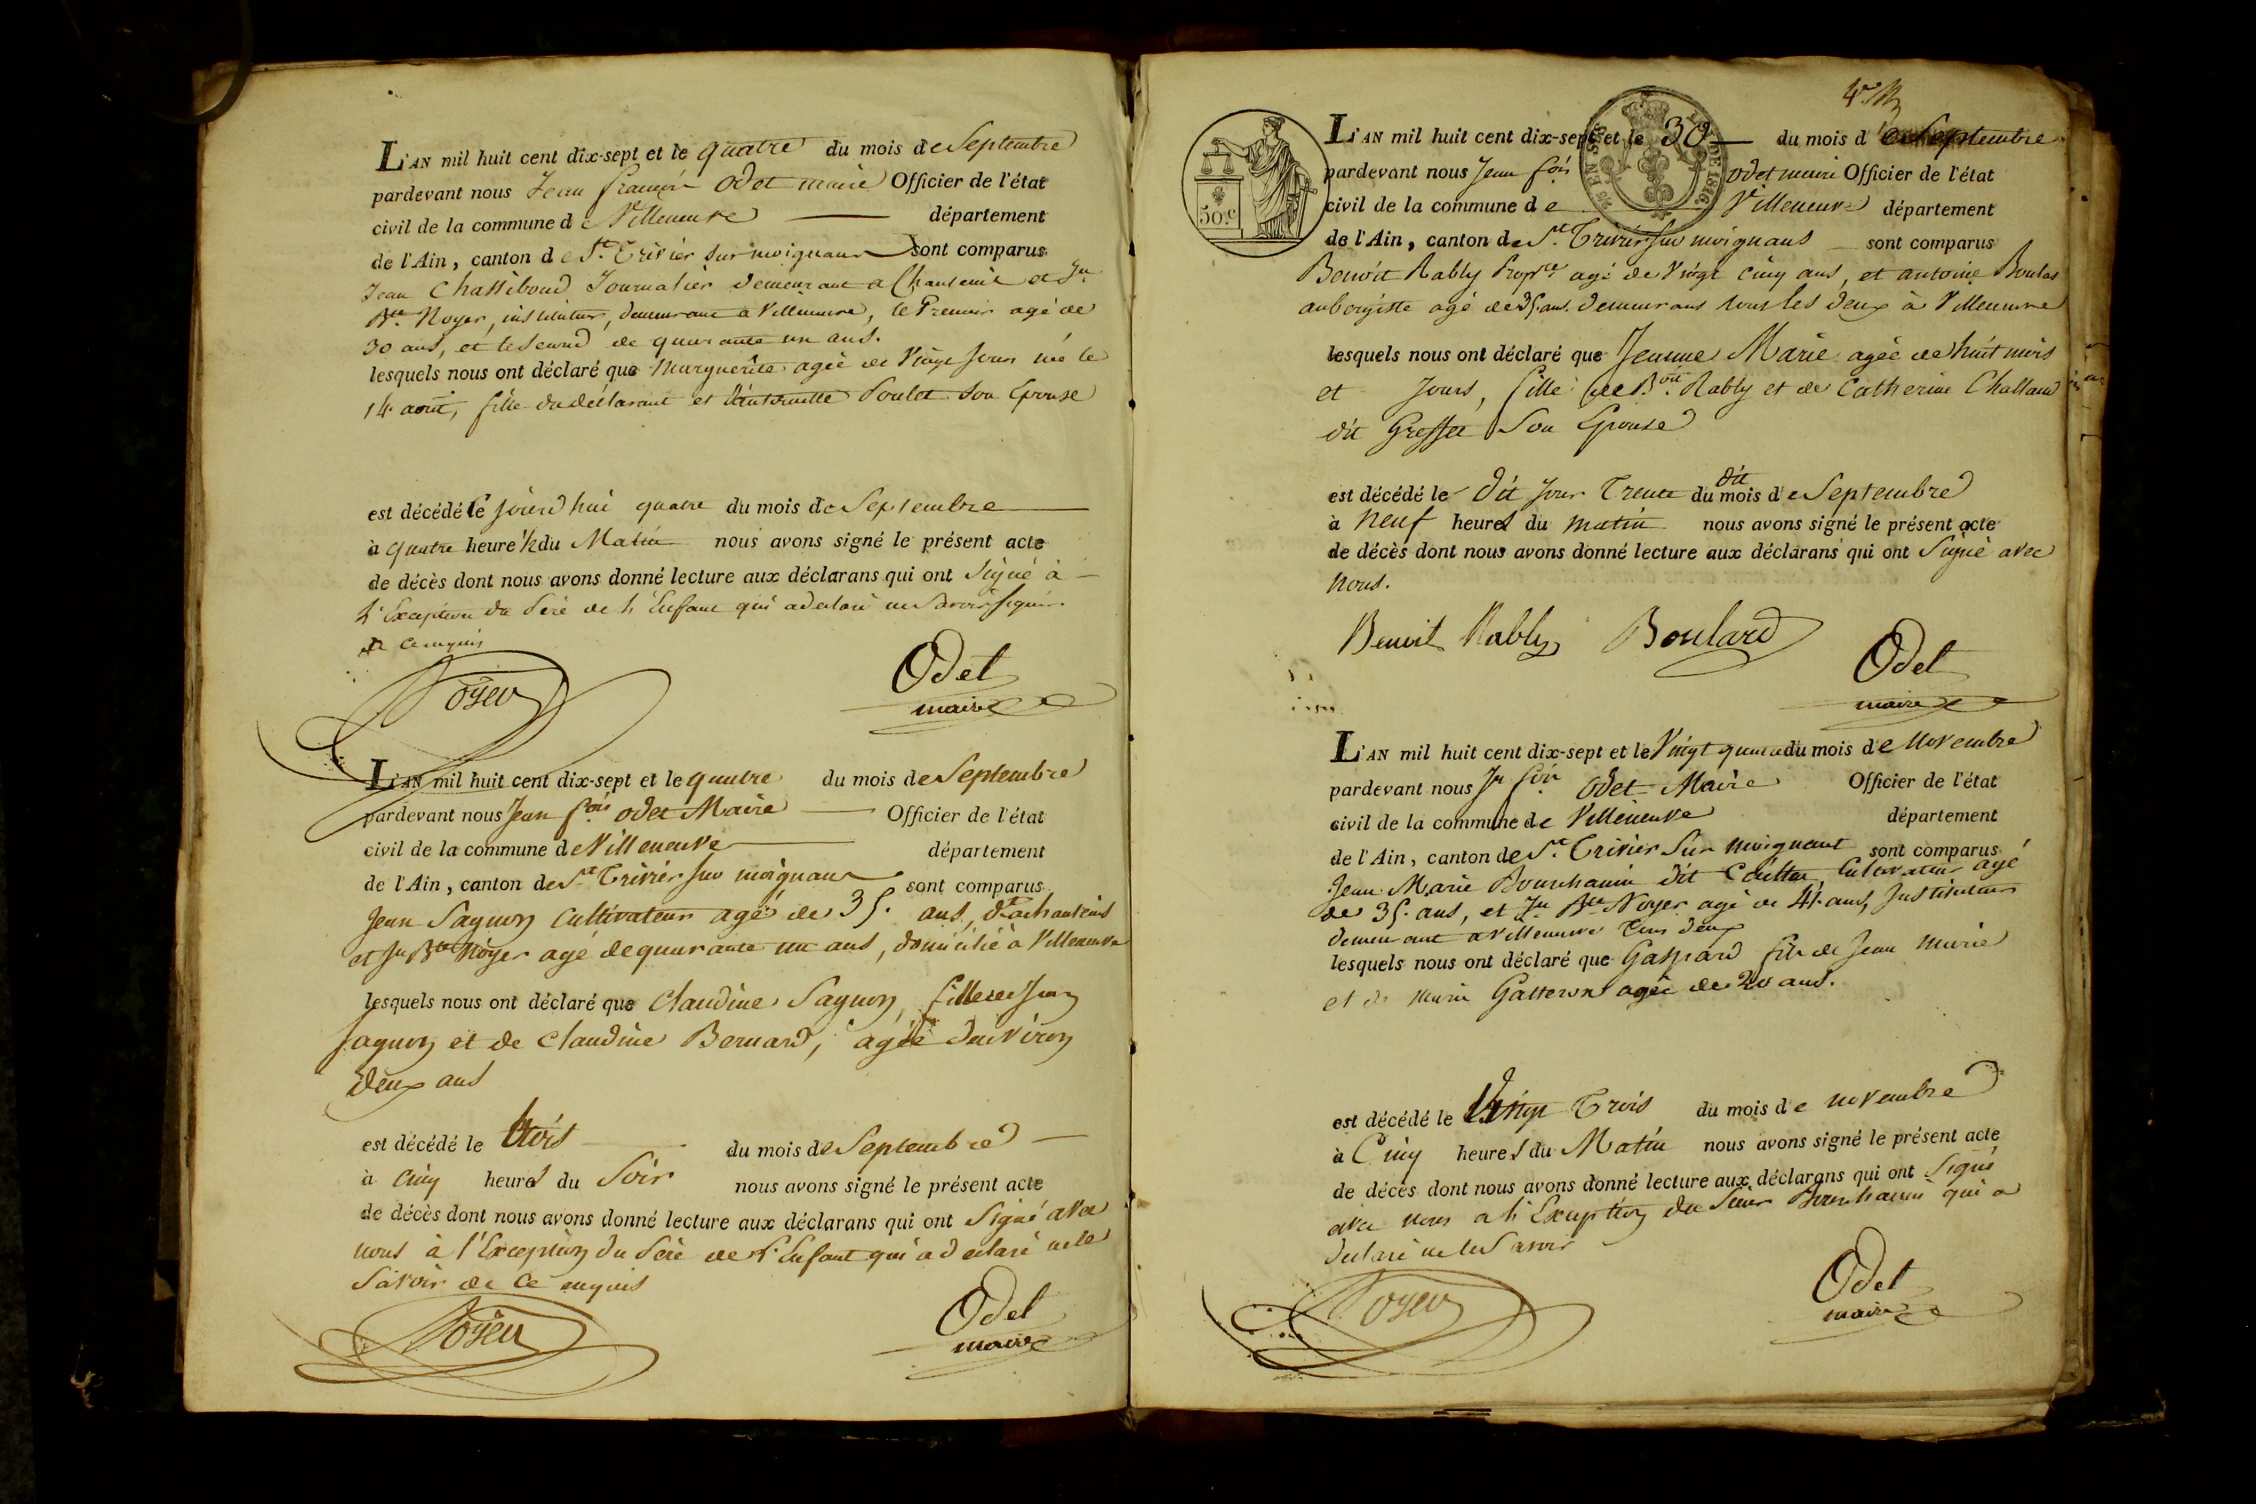 L'AN mil huit cent dix-sept et le quatre du mois de Septembre
pardevant nous Jean françois Odet maire Officier de l'état
civil de la commune de Villeneuve département
de l'Ain, canton de St. Trivier sur moignans sont comparus
Jean Chassiboud Journalier demeurant a Chanteins et Jn
Bte Noyer, instituteur, demeurant a Villeneuve, le Premier agé de
30 ans, et le second de quarante un ans.
lesquels nous ont déclaré que Marguerite agée de Vingt Jours née le
14 août, fille du déclarant et d'antoinette Poulet Son Epouse
est décédé Ce jourd'hui quatre du mois de Septembre
à quatre heure ½ du Matin nous avons signé le présent acte
de décès dont nous avons donné lecture aux déclarans qui ont Signé à
L'Exception du Père de L'Enfant qui a declaré ne Savoir signer
de ce enquis
Noyer
Odet
maire
L'AN mil huit cent dix-sept et le quatre du mois de Septembre
pardevant nous Jean fois Odet Maire Officier de l'état
civil de la commune de Villeneuve département
de l'Ain, canton de St. Trivier sur moignans sont comparus
Jean Saguin Cultivateur agé de 35. ans, dt a chanteins
et Jn Bte Noyer agé de quarante un ans, domicilié à Villeneuve
lesquels nous ont déclaré que Claudine Saguin, fille de Jean
Saguin et de Claudine Bernard, agée d'environ
deux ans
est décédé le trois du mois de Septembre
à Cinq heures du Soir nous avons signé le présent acte
de décès dont nous avons donné lecture aux déclarans qui ont Signé avec
nous à l'Exception du Père de L'Enfant qui a declaré ne le
Savoir de ce enquis
Noyer
Odet
maire
4e
50.c
L'AN mil huit cent dix-sept et le 30 du mois de Septembre
pardevant nous Jean fois Odet maire Officier de l'état
civil de la commune de Villeneuve département
de l'Ain, canton de St. Trivier sur moignans sont comparus
Benoit Rably Propre agé de Vingt Cinq ans, et antoine Boulas
aubergiste agé de 35. ans. demeurans tous les deux à Villeneuve
lesquels nous ont déclaré que Jeanne Marie agée de huit mois
et Jours, fille de Boit Rably et de Catherine Challand
dit Greffet Son Epouse
est décédé le dit jour Trente du dit mois de Septembre
à Neuf heures du matin nous avons signé le présent acte
de décès dont nous avons donné lecture aux déclarans qui ont Signé avec
nous.
Benoit Rably Boulard
Odet
maire
L'AN mil huit cent dix-sept et le Vingt quatre du mois de Novembre
pardevant nous Jn fois Odet Maire Officier de l'état
civil de la commune de Villeneuve département
de l'Ain, canton de St. Trivier Sur moignans sont comparus
Jean Marie Bourchanin dit Cultivateur agé
de 35. ans, et Jn Bte Noyer agé de 41. ans, Instituteur
demeurant a Villeneuve Tous deux
lesquels nous ont déclaré que Gaspard fils de Jean Marie
et de Marie Gatteron agée de 20 ans.
est décédé le Vingt Trois du mois de novembre
à Cinq heures du Matin nous avons signé le présent acte
de décès dont nous avons donné lecture aux déclarans qui ont Signé
avec nous a L'Exception du Sieur Bourchanin qui a
declaré ne le Savoir
Noyer
Odet
maire